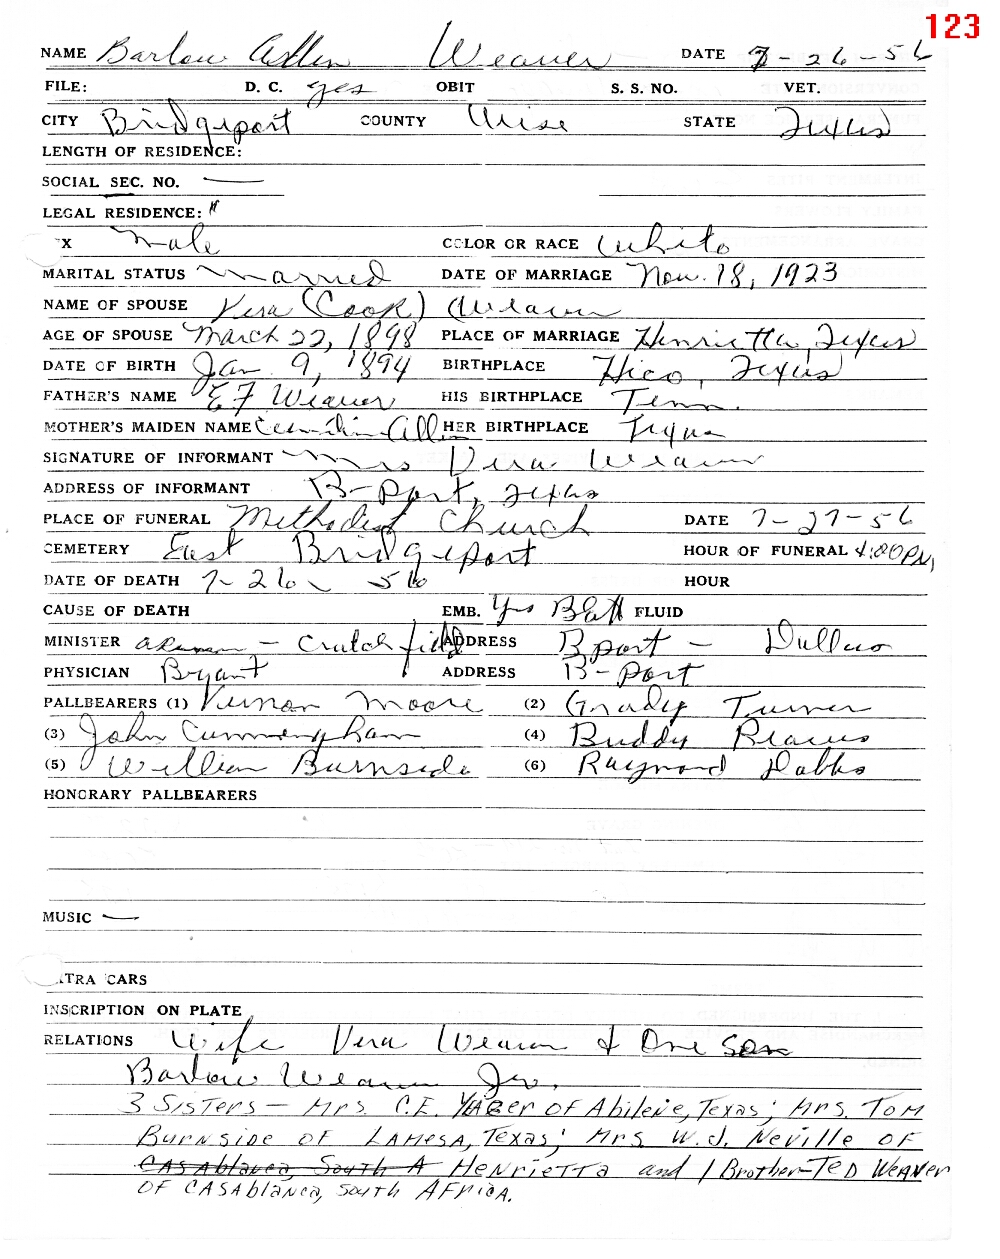 123
NAME Barlow Allen Weaver DATE 7-26-56
FILE: D. C. yes OBIT S. S. NO. VET.
CITY Bridgeport COUNTY Wise STATE Texas
LENGTH OF RESIDENCE:
SOCIAL SEC. NO. —
LEGAL RESIDENCE: "
EX Male COLOR OR RACE White
MARITAL STATUS Married DATE OF MARRIAGE Nov. 18, 1923
NAME OF SPOUSE Vera (Cook) Weaver
AGE OF SPOUSE March 22, 1898 PLACE OF MARRIAGE Henrietta, Texas
DATE OF BIRTH Jan 9, 1894 BIRTHPLACE Hico, Texas
FATHER'S NAME E F Weaver HIS BIRTHPLACE Tenn.
MOTHER'S MAIDEN NAME Allen HER BIRTHPLACE Texas
SIGNATURE OF INFORMANT Mrs Vera Weaver
ADDRESS OF INFORMANT B-Port, Texas
PLACE OF FUNERAL Methodist Church DATE 7-27-56
CEMETERY East Bridgeport HOUR OF FUNERAL 4:00 PM
DATE OF DEATH 7-26-56 HOUR
CAUSE OF DEATH EMB. Yes FLUID
MINISTER — Crutchfield ADDRESS Bport — Dallas
PHYSICIAN Bryant ADDRESS B-Port
PALLBEARERS (1) Vernon Moore (2) Grady Turner
(3) John Cunningham (4) Buddy
(5) William Burnside (6) Raymond Dabbs
HONORARY PALLBEARERS
MUSIC —
XTRA CARS
INSCRIPTION ON PLATE
RELATIONS Wife Vera Weaver & One Son
Barlow Weaver Jr.
3 SISTERS — Mrs. C.E. YAGER OF Abilene, Texas; Mrs. TOM
BURNSIDE OF LAMESA, Texas; Mrs W.J. Neville OF
CASAblanca, South A HENRIETTA and 1 BROTHER-TED WEAVER
OF CASAblanca, South AFRICA.